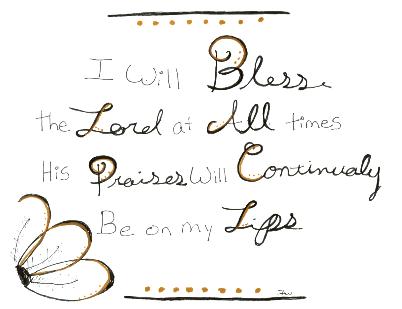 I Will Bless
the Lord at All times
His Praises Will Continualy
Be on my Lips